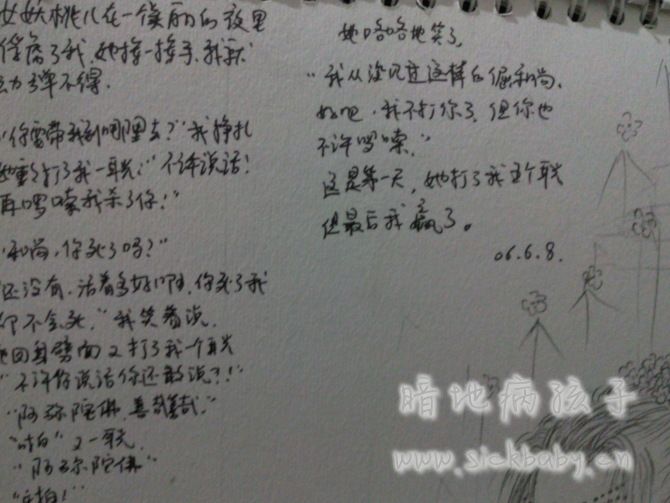 女妖桃儿在一俊丽的夜里
俘虏了我,她搂一搂手,我就
动弹不得.
"你要带我到哪里去?"我挣扎
她重重打了我一耳光:"不许说话!
再啰嗦我杀了你!"
和尚,你死了吗?"
还没有.活着多好啊.你死了我
却不会死."我笑着说.
她回身劈面又打了我一个耳光
"不许你说话你还敢说?!"
"阿弥陀佛,善哉善哉."
"啪"又一耳光.
"阿弥陀佛"
"啪!"
她咯咯地笑了,
"我从没见过这样的倔和尚,
好吧.我不打你了.但你也
不许啰嗦."
这是第一天,她打了我五个耳光
但最后我赢了。
06.6.8.
暗地病孩子
www.sickbaby.cn